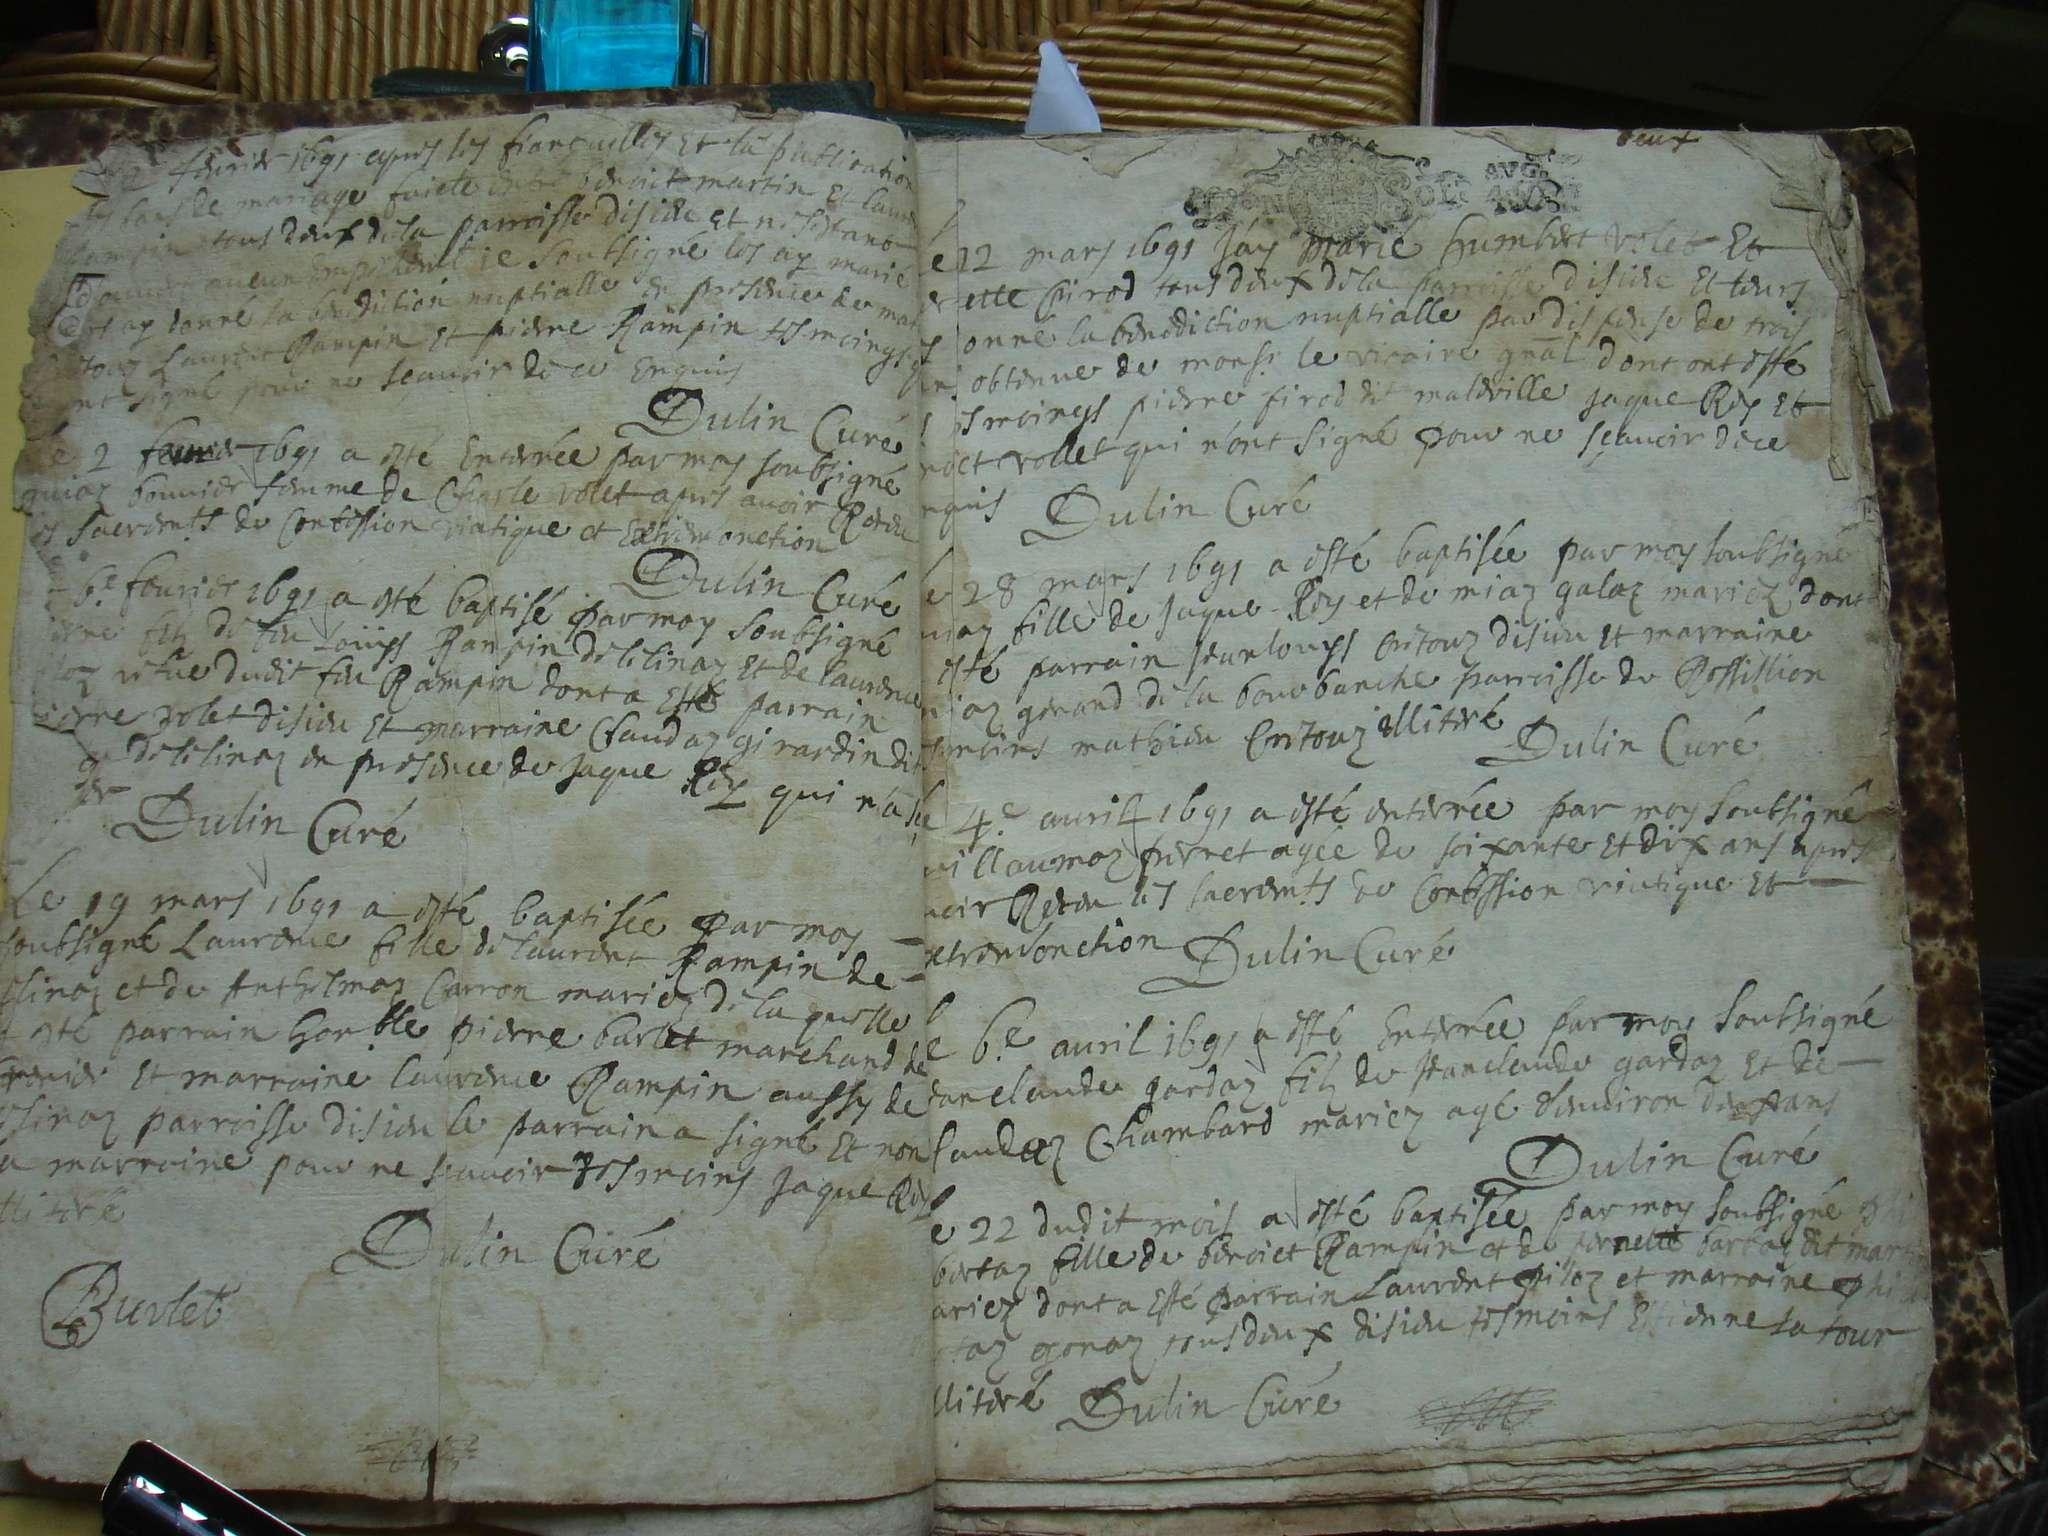 feurier 1691 apres les fiancailles Et la publication
des bans de mariage faicte entre benoict martin Et laure
Rampin tous deux de la parroisse disieu et ne sestant
aucun Empechement ie soubsigné les ay marié
et ay donné la benediction nuptialle en presence de mat
Laurent Rampin Et pierre Rampin tesmoings q
ont signé pour ne scauoir de ce Enquis
Dulin Curé
Le 2 feurier 1691 a esté Enterrée par moy soubsigné
bouuier femme de Charle volet apres auoir Receu
les sacrements de Confession viatique et Extreme onction
Dulin Curé
6.e feurier 1691 a esté baptisé par moy soubsigné
pierre filz de feu Louys Rampin de selinaz Et de laurence
vefue dudit feu Rampin dont a Esté parrain
pierre volet disieu Et marraine Claudaz girardin dit
de selinaz en presence de Jaque Rey qui n'a sçu
Dulin Curé
Le 19 mars 1691 a esté baptisée par moy
soubsigné Laurence fille de laurent Rampin de
selinaz et de Anthelmaz Carron mariez de laquelle
a esté parrain honble pierre burlet marchand de
Et marraine laurence Rampin aussy de
selinaz parroisse disieu le parrain a signé Et non
la marraine pour ne scauoir tesmoins Jaque Rey
illiteré
Dulin Curé
Burlet
deux
AVG.
SOLS
le 12 mars 1691 Jay Marié humbert volet Et
ette pirod tous deux de la parroisse disieu Et leurs
donné la benediction nuptialle par dispense de trois
obtenue de monsr. le vicaire gnal dont ont esté
tesmoings pierre firod dit maleville Jaque Rey Et
benoict vollet qui n'ont signé pour ne sçauoir de ce
enquis Dulin Curé
le 28 mars 1691 a esté baptisée par moy soubsigné
miaz fille de Jaque Rey et de miaz galaz mariez dont
a esté parrain Jean louys Critouz disieu Et marraine
miaz gerand de la bourbanche parroisse de Rossillion
tesmoins mathieu Critouz illiteré
Dulin Curé
le 4.e auril 1691 a esté enterrée par moy soubsigné
guillaumaz perret agée de soixante Et dix ans apres
auoir Receu les sacrements de Confession viatique Et
extremeonction Dulin Curé
le 6.e auril 1691 a esté Enterrée par moy soubsigné
Jean claude gardaz filz de Jean claude gardaz Et de
Claudaz Chambard mariez agé d'enuiron deux ans
Dulin Curé
le 22 dudit mois a esté baptisée par moy soubsigné phi
bertaz fille de benoict Rampin et de pernette barbaz dit mart
mariez dont a Esté parrain Laurent pilaz et marraine phi
taz gonaz tous deux disieu tesmoins Estienne la tour
illiteré Dulin Curé